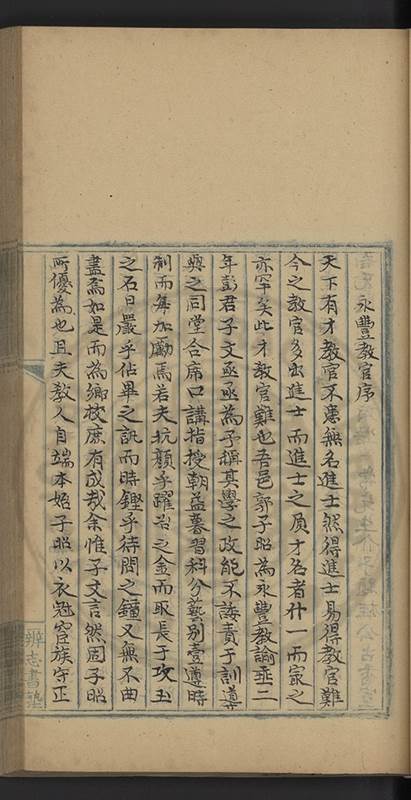 永豐教官序
天下有才教官不患無名進士然得進士易得教官難
今之教官多出進士而進士之負才名者什一而家之
亦罕矣此才教官難也吾邑郭子昭為永豐教諭垂二
年彭君子文亟亟為予稱其學之政能不諉責于訓導
與之同堂合席口講指授朝益暮習科分藝別壹遵時
制而每加勵焉若夫抗顏乎躍冶之金而取長于攻玉
之石日嚴乎佔畢之訊而時鏗乎待問之鐘又無不曲
盡焉如是而為鄉校庶有成哉余惟子文言然固子昭
所優為也且夫教人自端本始子昭以衣冠宦族守正
辨志書塾